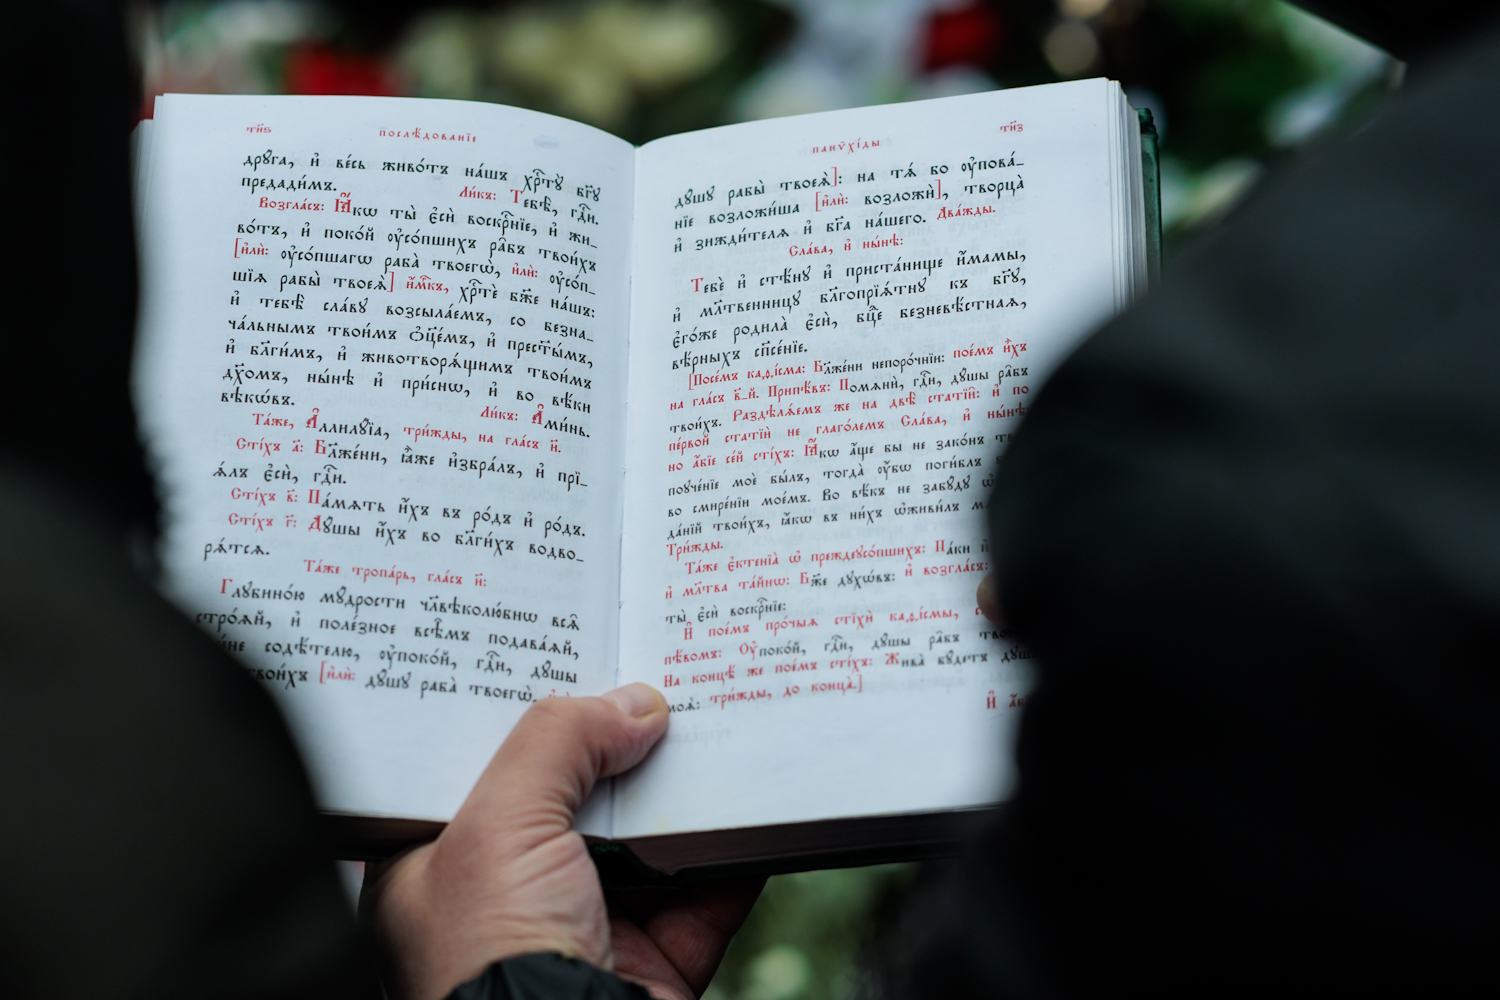 тн҃ѕ
послѣ́дованїе
дрꙋ́га, и҆ ве́сь живо́тъ на́шъ хрⷭ҇тꙋ̀ бг҃ꙋ
предади́мъ. Ли́къ: Тебѣ̀, гдⷭ҇и.
Возгла́съ: Ꙗ҆́кѡ ты̀ є҆сѝ воскрⷭ҇нїе, и҆ жи-
во́тъ, и҆ поко́й ᲂу҆со́пшихъ ра̑бъ твои́хъ
[и҆лѝ: ᲂу҆со́пшагѡ раба̀ твоегѡ̀, и҆лѝ: ᲂу҆со́п-
шїѧ рабы̀ твоеѧ̀] и҆́м̾къ, хрⷭ҇тѐ бж҃е на́шъ:
и҆ тебѣ̀ сла́вꙋ возсыла́емъ, со безна-
ча́льнымъ твои́мъ ѻ҆ц҃е́мъ, и҆ прест҃ы́мъ,
и҆ бл҃ги́мъ, и҆ животворѧ́щимъ твои́мъ
дх҃омъ, ны́нѣ и҆ при́снѡ, и҆ во вѣ́ки
вѣкѡ́въ. Ли́къ: А҆ми́нь.
Та́же, А҆ллилꙋ́їа, три́жды, на гла́съ и҃.
Сті́хъ а҃: Бл҃же́ни, ꙗ҆̀же и҆збра́лъ, и҆ прїѧ́лъ
ѧ́лъ є҆сѝ, гдⷭ҇и.
Сті́хъ в҃: Па́мѧть и҆́хъ въ ро́дъ и҆ ро́дъ.
Сті́хъ г҃: Дꙋ́шы и҆́хъ во бл҃ги́хъ водво-
рѧ́тсѧ.
Та́же тропа́рь, гла́съ и҃:
Глꙋбино́ю мꙋ́дрости чл҃вѣколю́бнѡ всѧ̑
стро́ѧй, и҆ поле́зное всѣ̑мъ подава́ѧй,
не содѣ́телю, ᲂу҆поко́й, гдⷭ҇и, дꙋ́шы
твои́хъ [и҆лѝ: дꙋ́шꙋ раба̀ твоегѡ̀,
тн҃з
панѷхі́ды
дꙋ́шꙋ рабы̀ твоеѧ̀]: на тѧ́ бо ᲂу҆пова́-
нїе возложи́ша [и҆лѝ: возложѝ], творца̀
и҆ зижди́телѧ и҆ бг҃а на́шего. Два́жды.
Сла́ва, и҆ ны́нѣ:
Тебѐ и҆ стѣ́нꙋ и҆ приста́нище и҆́мамы,
и҆ мл҃твенницꙋ бл҃гопрїѧ́тнꙋ къ бг҃ꙋ,
є҆го́же родила̀ є҆сѝ, бцⷣе безневѣ́стнаѧ,
вѣ́рныхъ сп҃се́нїе.
[Посе́мъ каѳі́сма: Бл҃же́ни непоро́чнїи: пое́мъ и҆̀хъ
на гла́съ в҃-й. Припѣ́въ: Помѧнѝ, гдⷭ҇и, дꙋ́шы ра̑бъ
твои́хъ. Раздѣлѧ́емъ же на двѣ̀ статїи̑: и҆ по
пе́рвой статїѝ не глаго́лемъ Сла́ва, и҆ ны́нѣ:
но а҆́бїе се́й сті́хъ: Ꙗ҆́кѡ а҆́ще бы не зако́нъ
поꙋче́нїе моѐ бы́лъ, тогда̀ ᲂу҆́бѡ поги́блъ
во смире́нїи мое́мъ. Во вѣ́къ не забꙋ́дꙋ
да́нїй твои́хъ, ꙗ҆́кѡ въ ни́хъ ѡ҆живи́лъ
Три́жды.
Та́же є҆ктенїа̀ ѡ҆ преждеꙋсо́пшихъ: Па́ки
и҆ мл҃тва та́йнѡ: Бж҃е дꙋхѡ́въ: и҆ возгла́съ:
ты̀ є҆сѝ воскрⷭ҇нїе:
И҆ пое́мъ про́чыѧ стїхѝ каѳі́смы,
пѣ́вомъ: Оу҆поко́й, гдⷭ҇и, дꙋ́шы ра̑бъ
На концѣ́ же пое́мъ сті́хъ: Жива̀ бꙋ́детъ
моѧ̀: три́жды, до конца̀.]
И҆